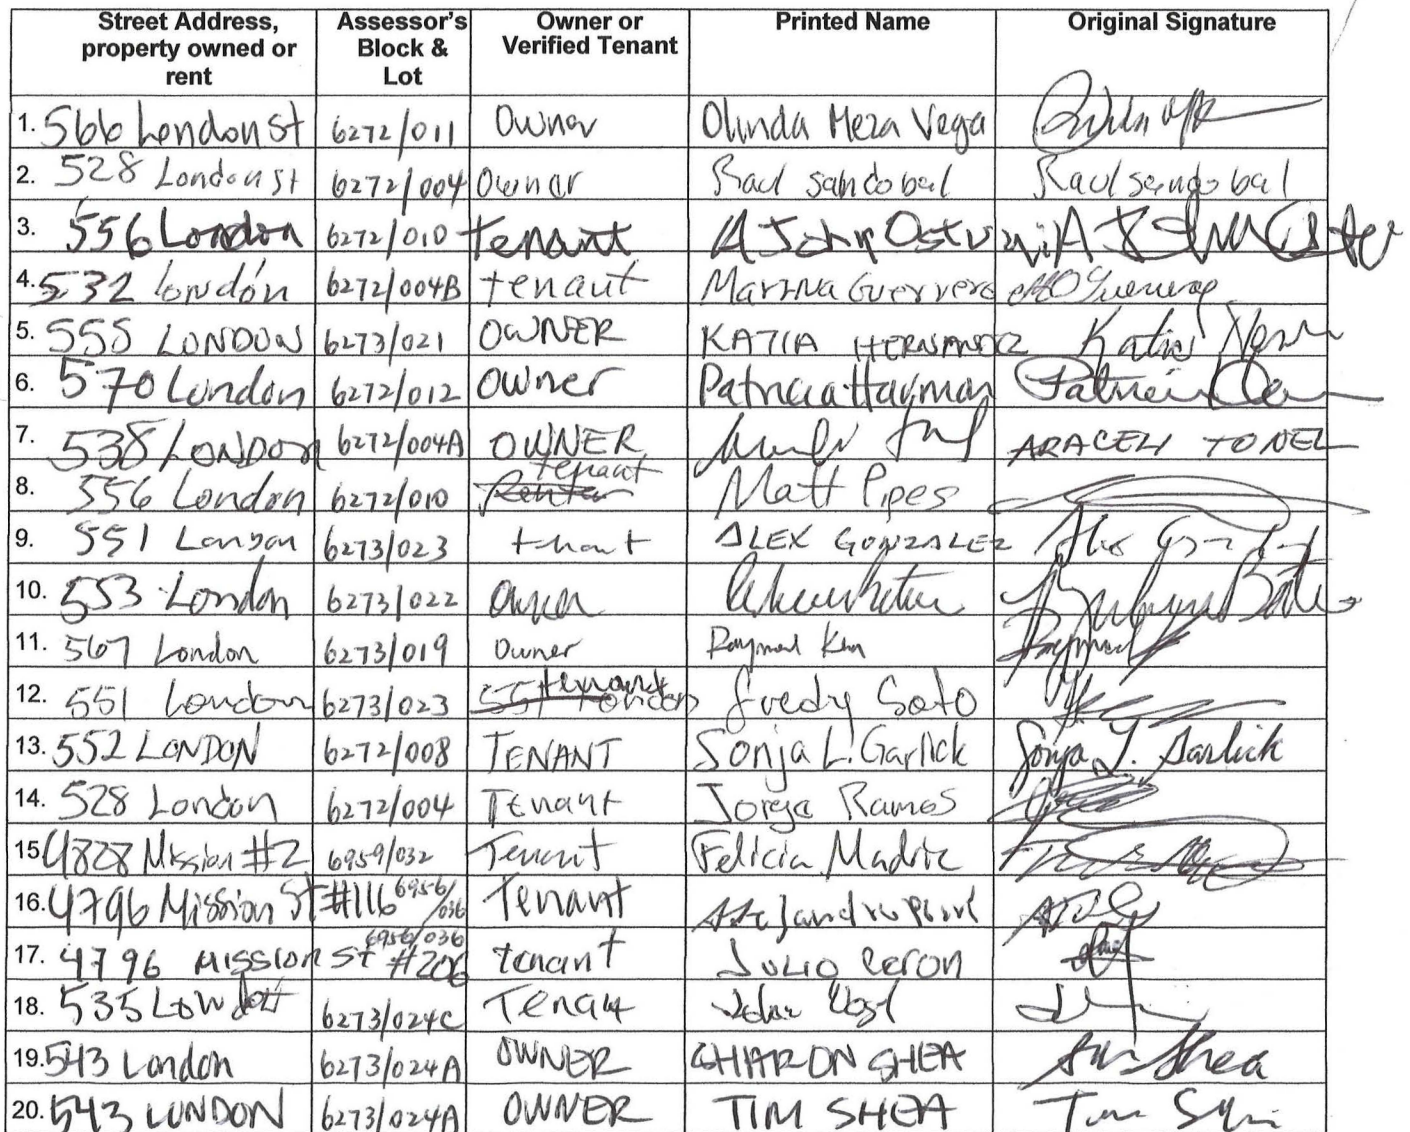 Street Address, property owned or rent Assessor's Block & Lot Owner or Verified Tenant Printed Name Original Signature
1. 566 London St 6272/011 Owner Olinda Meza Vega
2. 528 London St 6272/004 Owner Raul Sandobal Raul Sandobal
3. 556 London 6272/010 tenant A John
4. 532 London 6272/004B tenant Marina Guerrero
5. 555 LONDON 6273/021 OWNER KATIA HERNANDEZ Katia
6. 570 London 6272/012 Owner Patricia Hayman Patricia
7. 538 LONDON 6272/004A OWNER ARACELI TONEL
8. 556 London 6272/010 tenant Matt Pipes
9. 551 London 6273/023 tenant ALEX GONZALEZ Alex
10. 553 London 6273/022 owner
11. 567 London 6273/019 Owner Raymond
12. 551 London 6273/023 551 London tenant Fredy Soto
13. 552 LONDON 6272/008 TENANT Sonja L. Garlick Sonja L. Garlick
14. 528 London 6272/004 Tenant Jorge Ramos
15. 4828 Mission #2 6959/032 Tenant Felicia Madriz
16. 4796 Mission St #116 6956/036 Tenant
17. 4796 Mission St #206 6956/036 tenant Julio Ceron
18. 535 London 6273/024C Tenant John
19. 543 London 6273/024A OWNER SHARON SHEA Shea
20. 543 LONDON 6273/024A OWNER TIM SHEA Tim